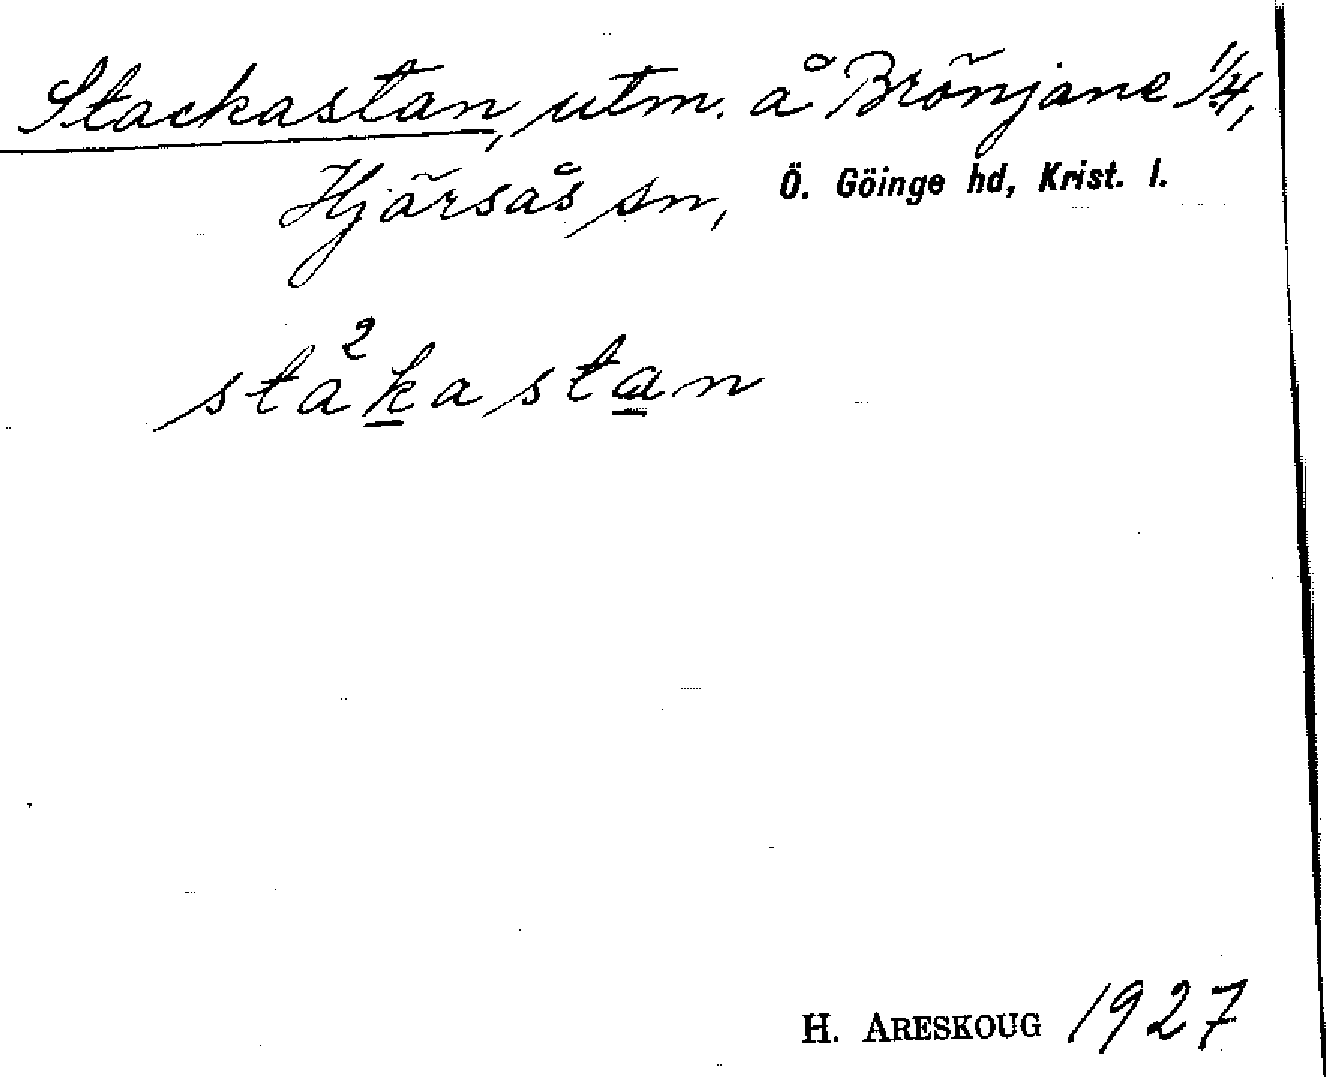 Stackastan, utm. å Brönjane 1/4,
Hjärsås sn, Ö. Göinge hd, Krist. l.
sta²kastan
H. ARESKOUG 1927